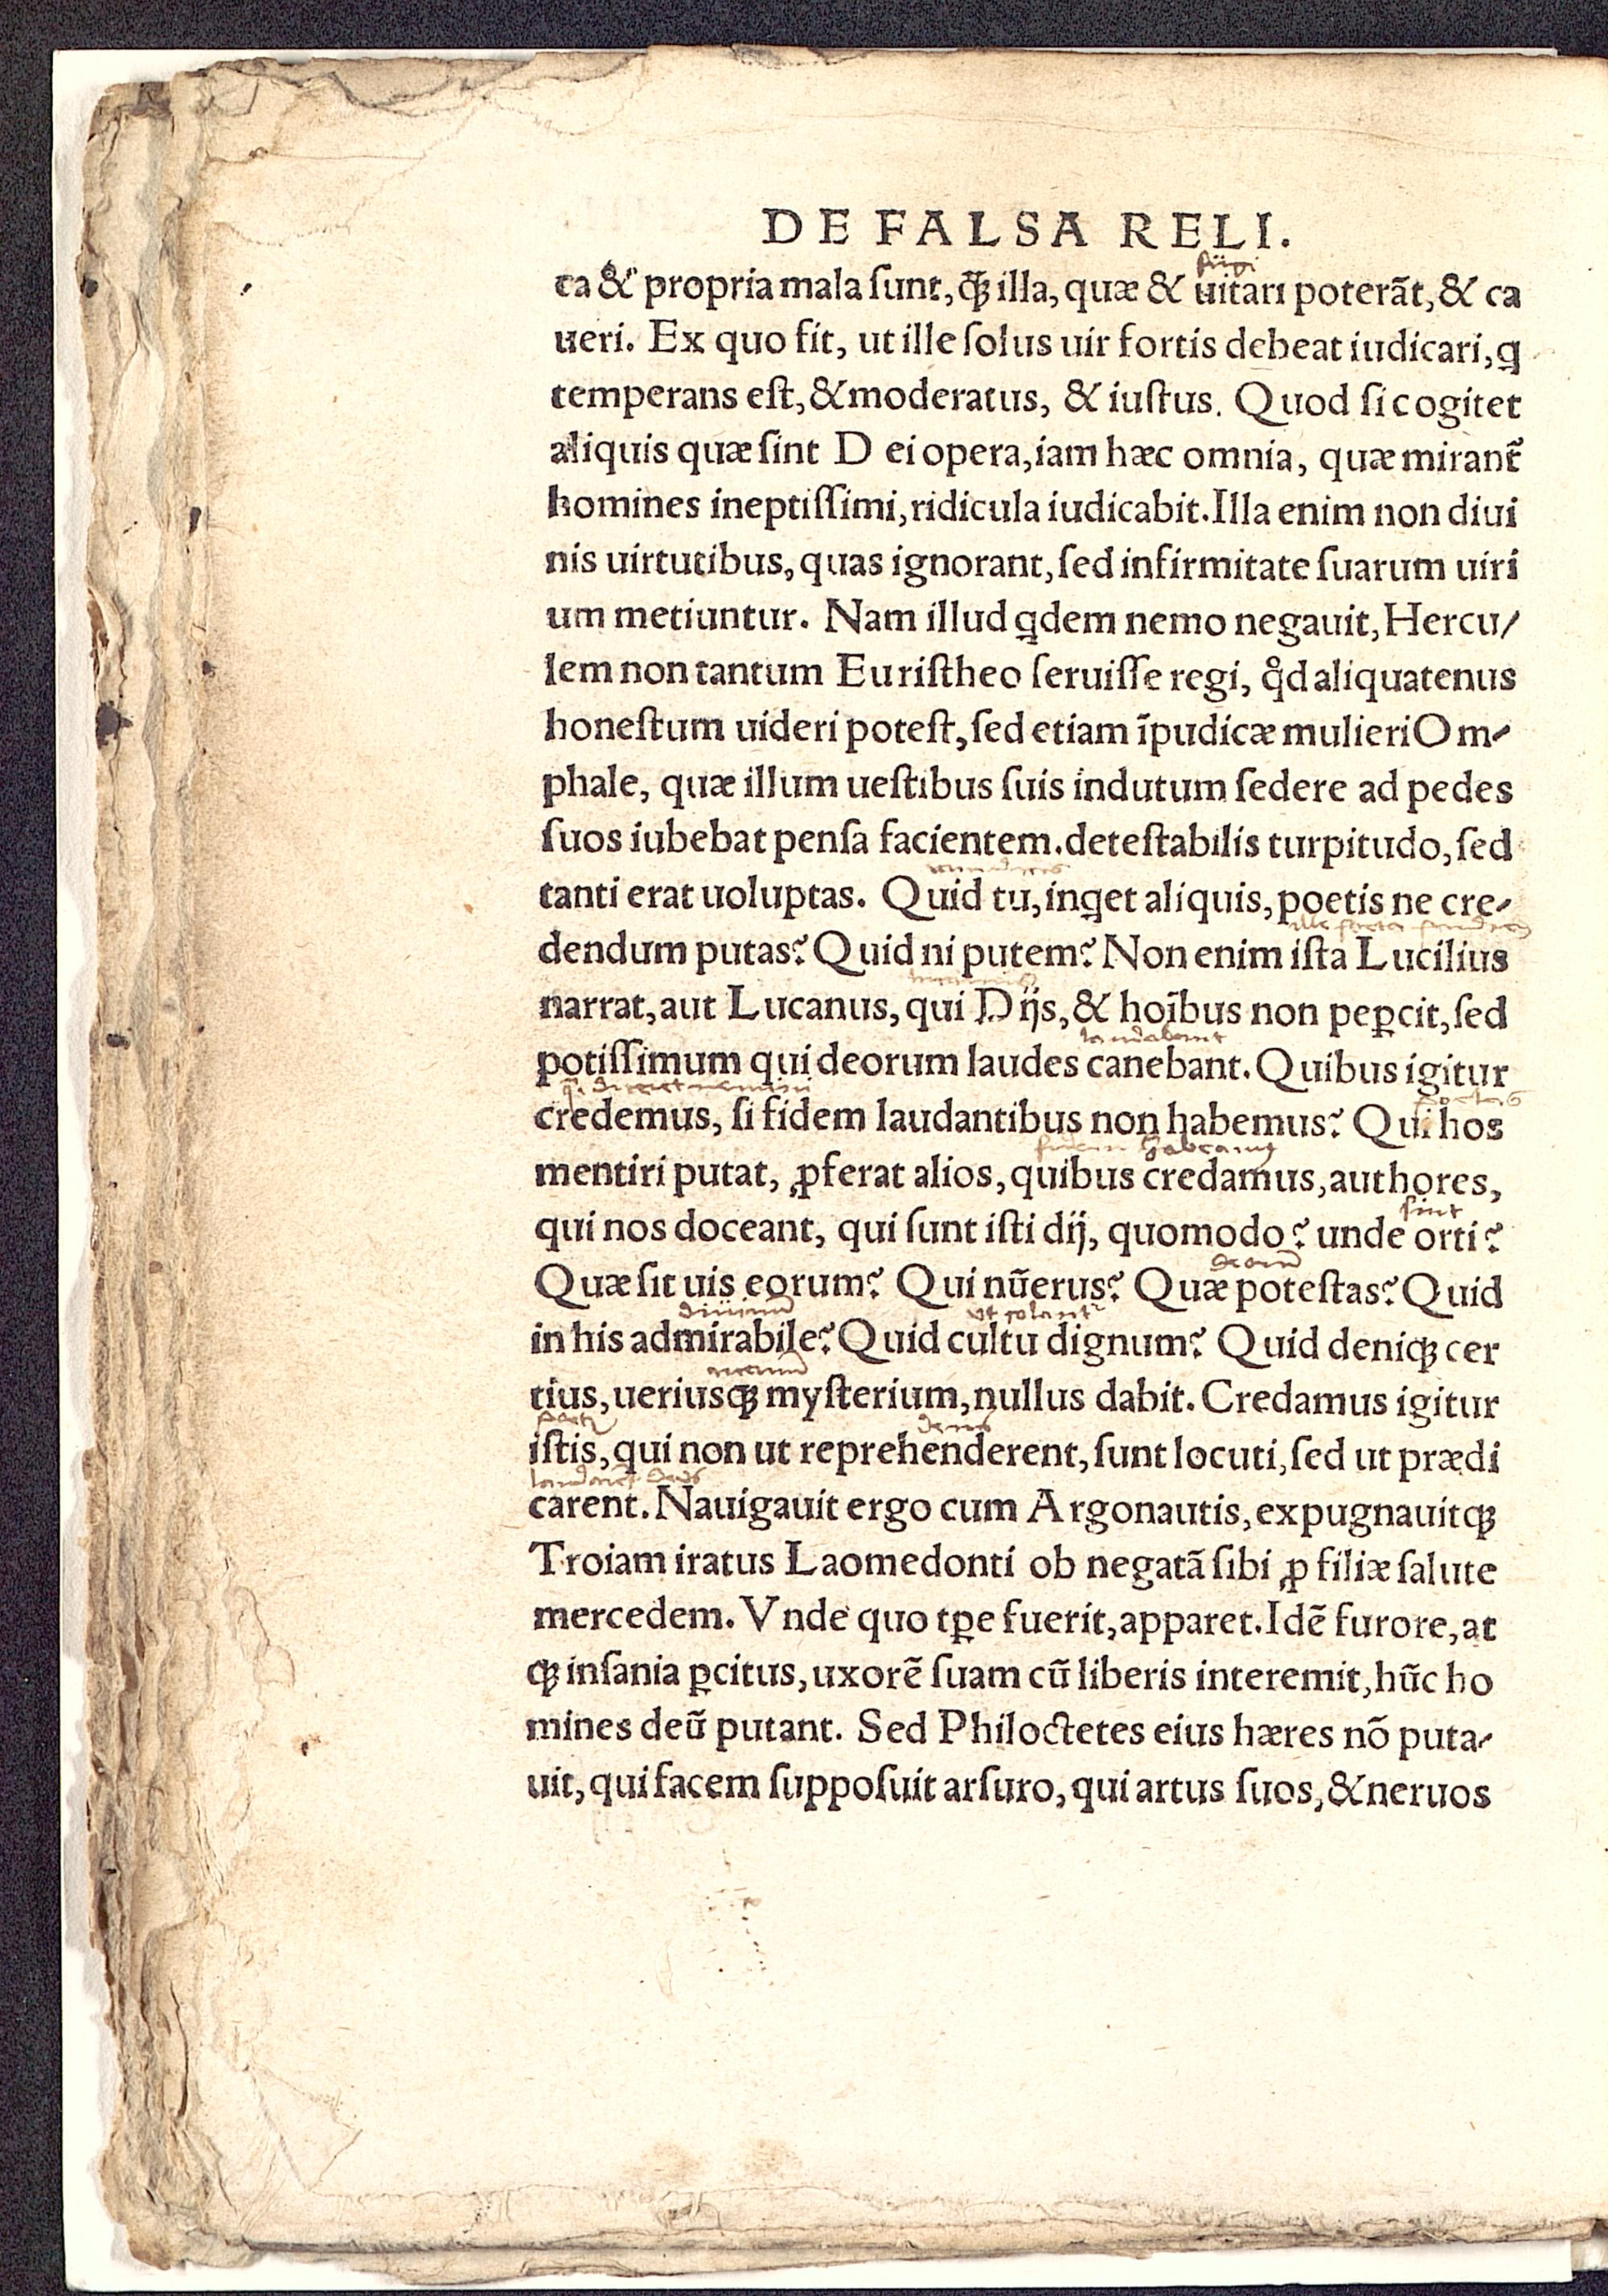 DE FALSA RELI.
fugi
ta & propria mala ſunt, ꝙ̃ꝫ illa, quæ & uitari poterãt, & ca
ueri. Ex quo fit, ut ille ſolus uir fortis debeat iudicari, ꝗ
temperans eſt, & moderatus, & iuſtus. Quod ſi cogitet
aliquis quæ ſint Dei opera, iam hæc omnia, quæ mirant̃
homines ineptiſſimi, ridicula iudicabit. Illa enim non diui
nis uirtutibus, quas ignorant, ſed infirmitate ſuarum uiri
um metiuntur. Nam illud ꝗdem nemo negauit, Hercu/
lem non tantum Euriſtheo ſeruiſſe regi, qͦd aliquatenus
honeſtum uideri poteſt, ſed etiam ĩpudicæ mulieri Om-
phale, quæ illum ueſtibus ſuis indutum ſedere ad pedes
ſuos iubebat penſa facientem. deteſtabilis turpitudo, ſed
tanti erat uoluptas. Quid tu, inꝗet aliquis, poetis ne cre-
dendum putas? Quid ni putem? Non enim iſta Lucilius
narrat, aut Lucanus, qui Dijs, & hoĩbus non peꝑcit, ſed
laudabant
potiſſimum qui deorum laudes canebant. Quibus igitur
credemus, ſi fidem laudantibus non habemus? Qui hos
fidem habeamus
mentiri putat, ꝓferat alios, quibus credamus, authores,
ſint
qui nos doceant, qui ſunt iſti dij, quomodo? unde orti?
deorũ
Quæ ſit uis eorum? Qui nũerus? Quæ poteſtas? Quid
diuinũ ut colant̃
in his admirabile? Quid cultu dignum? Quid deniqꝫ cer
tius, ueriusqꝫ myſterium, nullus dabit. Credamus igitur
deos
iſtis, qui non ut reprehenderent, ſunt locuti, ſed ut prædi
laudarẽt deos
carent. Nauigauit ergo cum Argonautis, expugnauitqꝫ
Troiam iratus Laomedonti ob negatã ſibi ꝓ filiæ ſalute
mercedem. Vnde quo tꝑe fuerit, apparet. Idẽ furore, at
qꝫ inſania ꝑcitus, uxorẽ ſuam cũ liberis interemit, hũc ho
mines deũ putant. Sed Philoctetes eius hæres nõ puta-
uit, qui facem ſuppoſuit arſuro, qui artus ſuos, & neruos